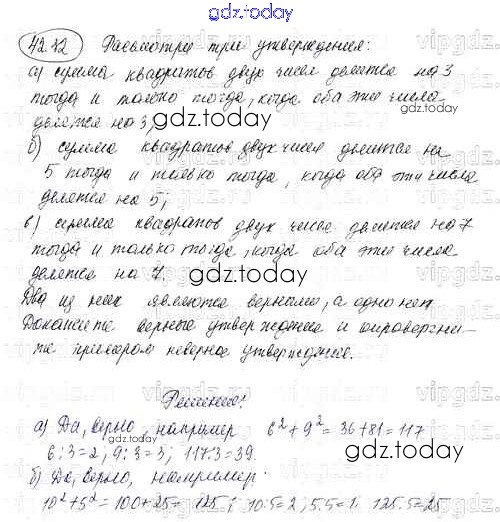 gdz.today
42.12 Рассмотрим три утверждения:
а) сумма квадратов двух чисел делится на 3
тогда и только тогда, когда оба эти числа
делятся на 3;
gdz.today
б) сумма квадратов двух чисел делится на
5 тогда и только тогда, когда оба эти числа
делятся на 5;
gdz.today
в) сумма квадратов двух чисел делится на 7
тогда и только тогда, когда оба эти числа
делятся на 7.
gdz.today
Два из них являются верными, а одно нет.
Докажите верные утверждения и опровергни-
те примером неверное утверждение.
Решение:
а) Да, верно, например 6²+9²=36+81=117
6:3=2; 9:3=3; 117:3=39.
gdz.today
gdz.today
б) Да, верно, например:
10²+5²=100+25=125; 10:5=2; 5:5=1; 125:5=25